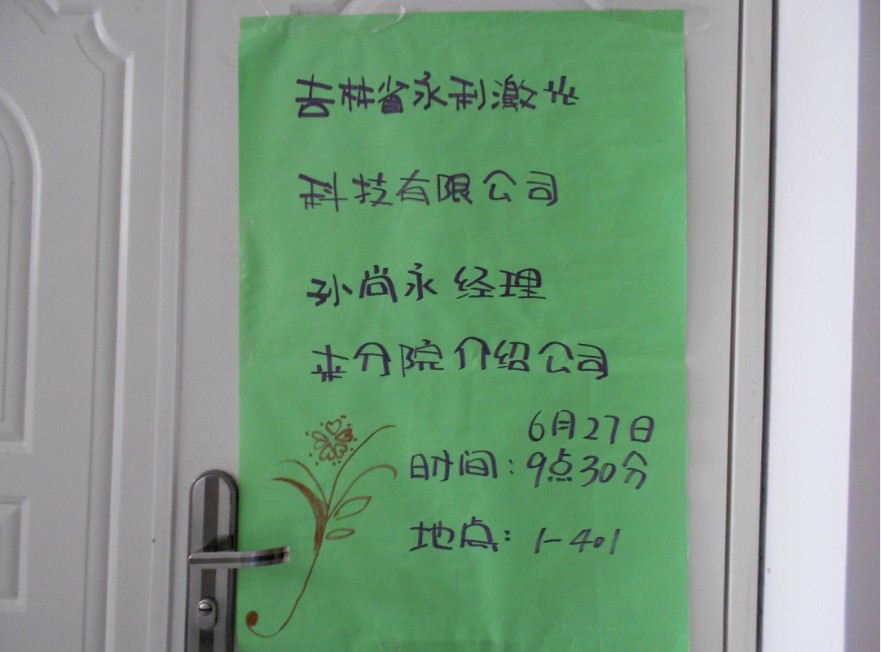 吉林省永利激光
科技有限公司
孙尚永 经理
来分院介绍公司
6月27日
时间：9点30分
地点：1-401